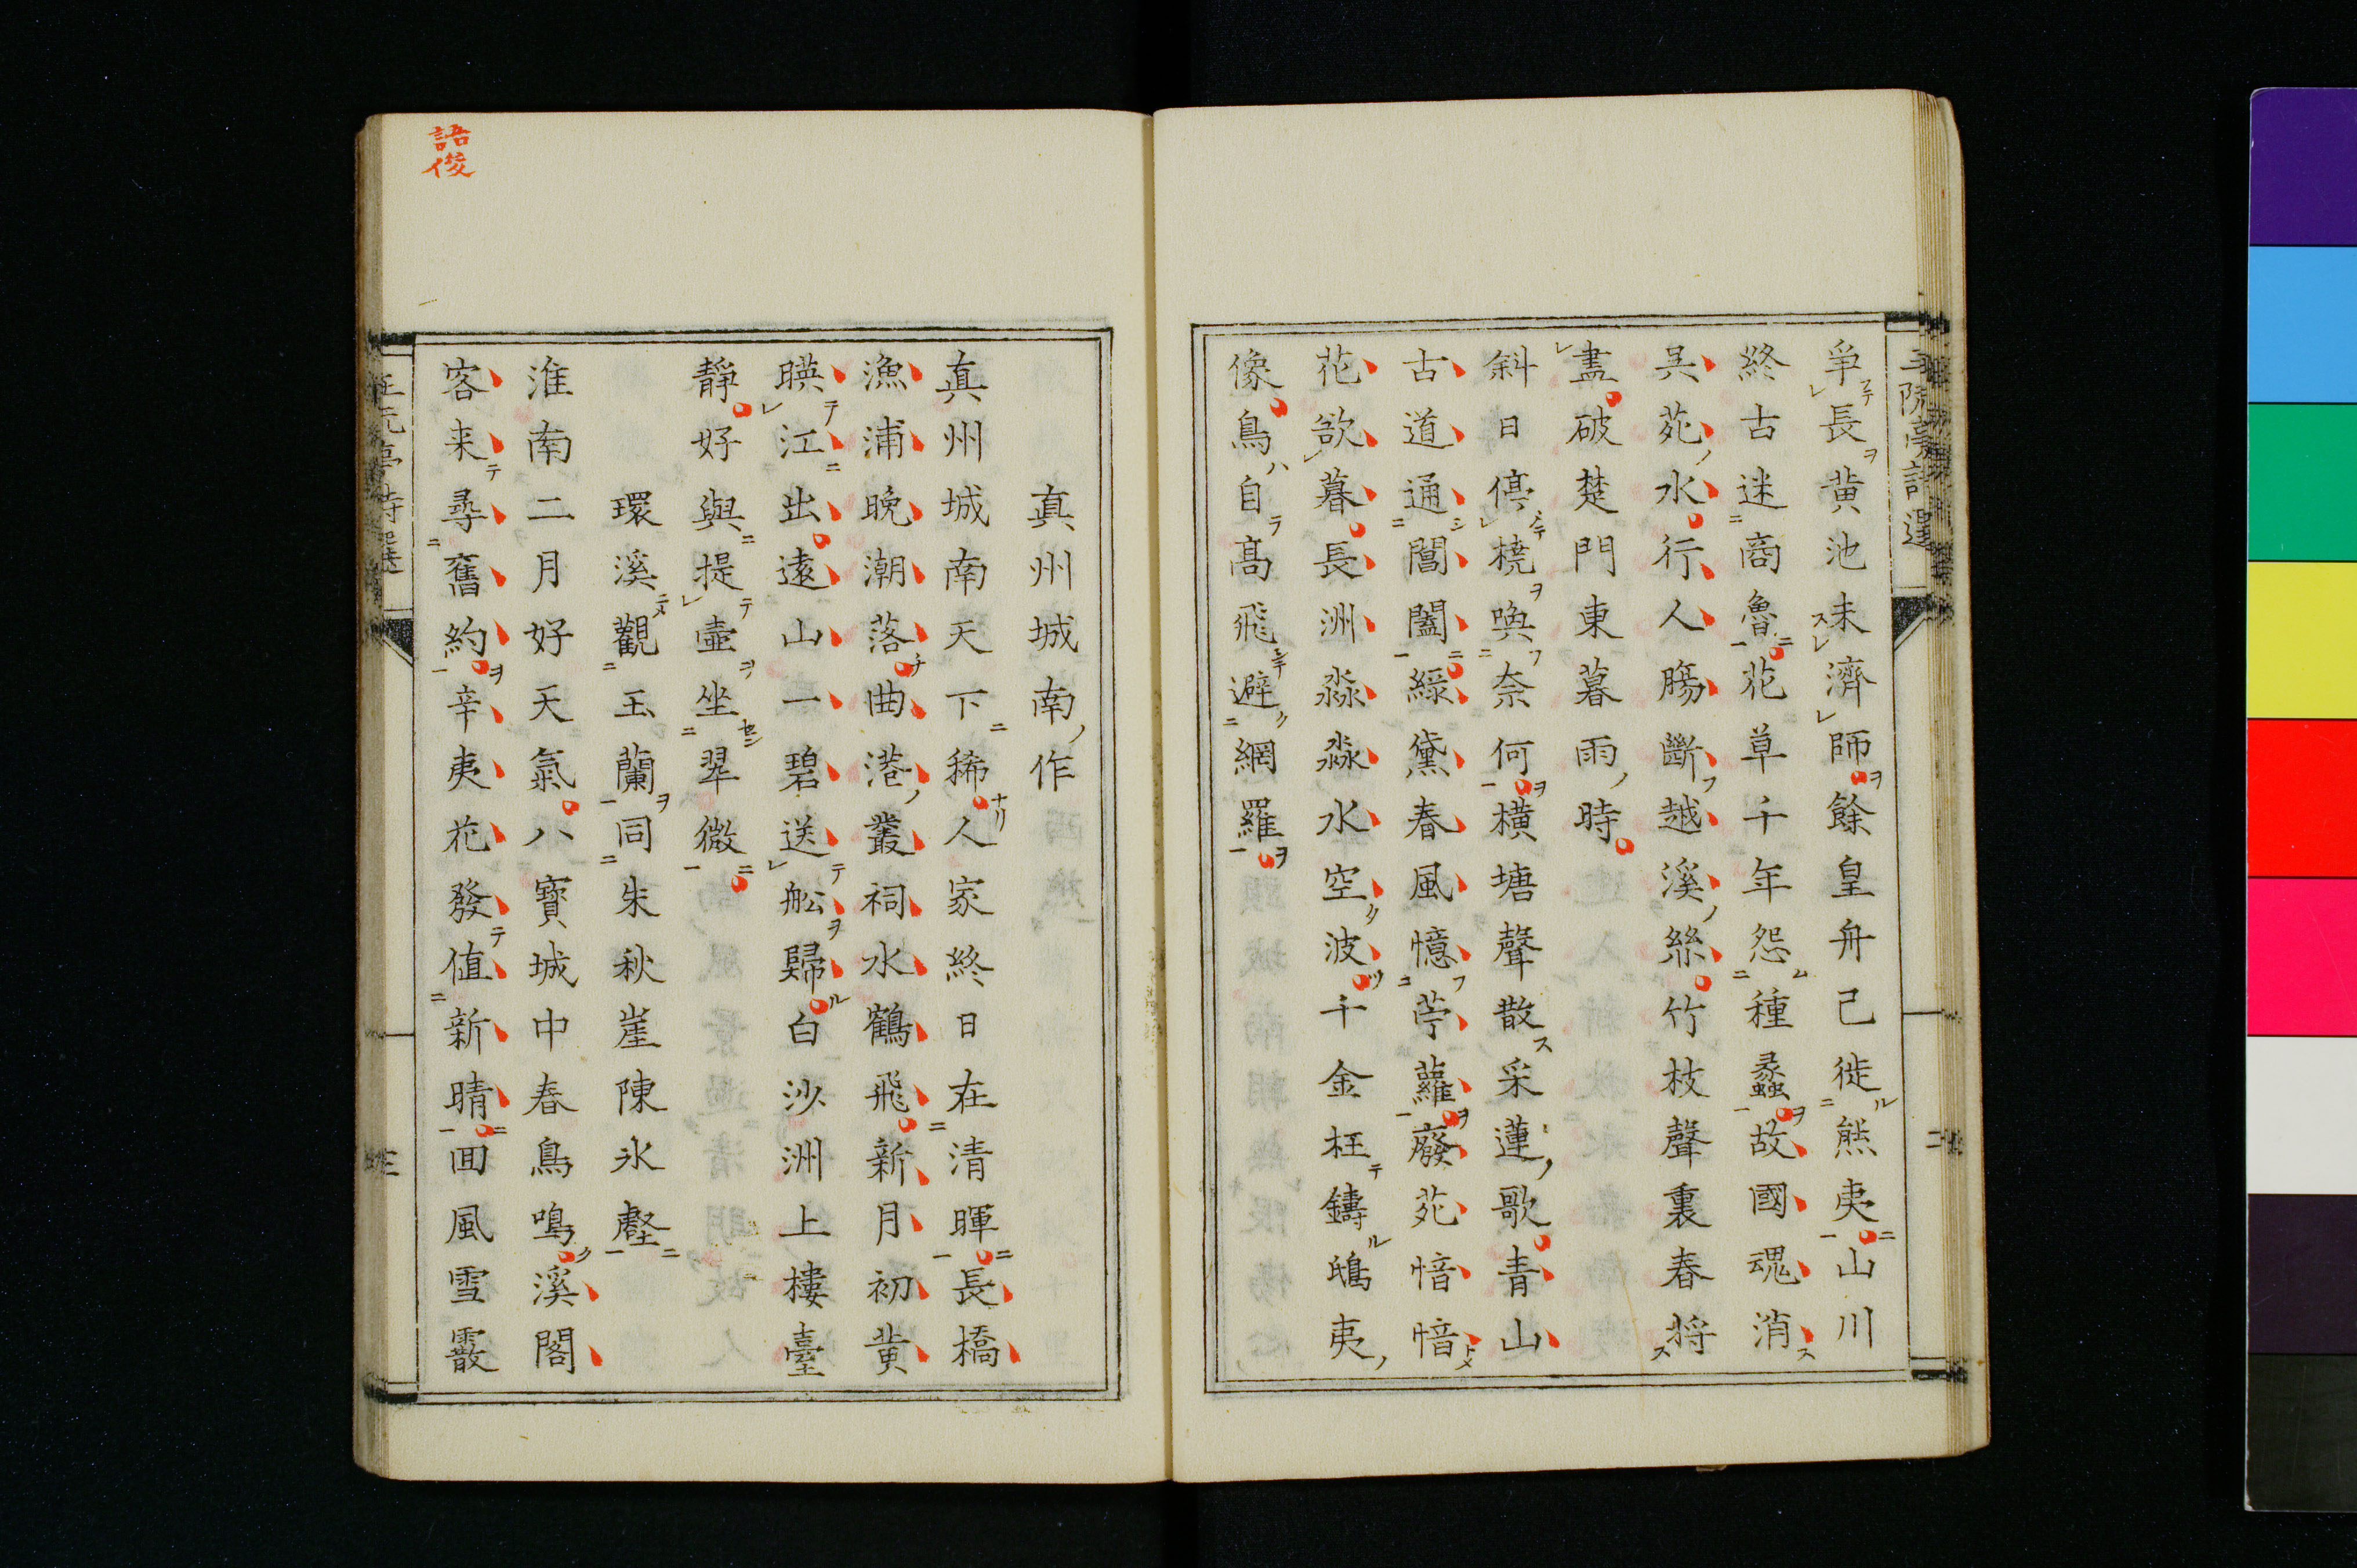 爭長黃池未濟師餘皇舟已徙熊夷山川
終古迷商魯花草千年怨種蠡故國魂消
吳苑水行人腸斷越溪絲竹枝聲裏春將
盡破楚門東暮雨時
斜日停橈喚奈何橫塘聲散采蓮歌青山
古道通閶闔綠黛春風憶苧蘿廢苑愔愔
花欲暮長洲淼淼水空波千金枉鑄鴟夷
像鳥自高飛避網羅
語俊
真州城南作
真州城南天下稀人家終日在清暉長橋
漁浦晚潮落曲港叢祠水鶴飛新月初黃
暎江出遠山一碧送舩歸白沙洲上樓臺
靜好與提壺坐翠微
環溪觀玉蘭同朱秋崖陳氷壑
淮南二月好天氣八寶城中春鳥鳴溪閣
客来尋舊約辛夷花發值新晴回風雪霰